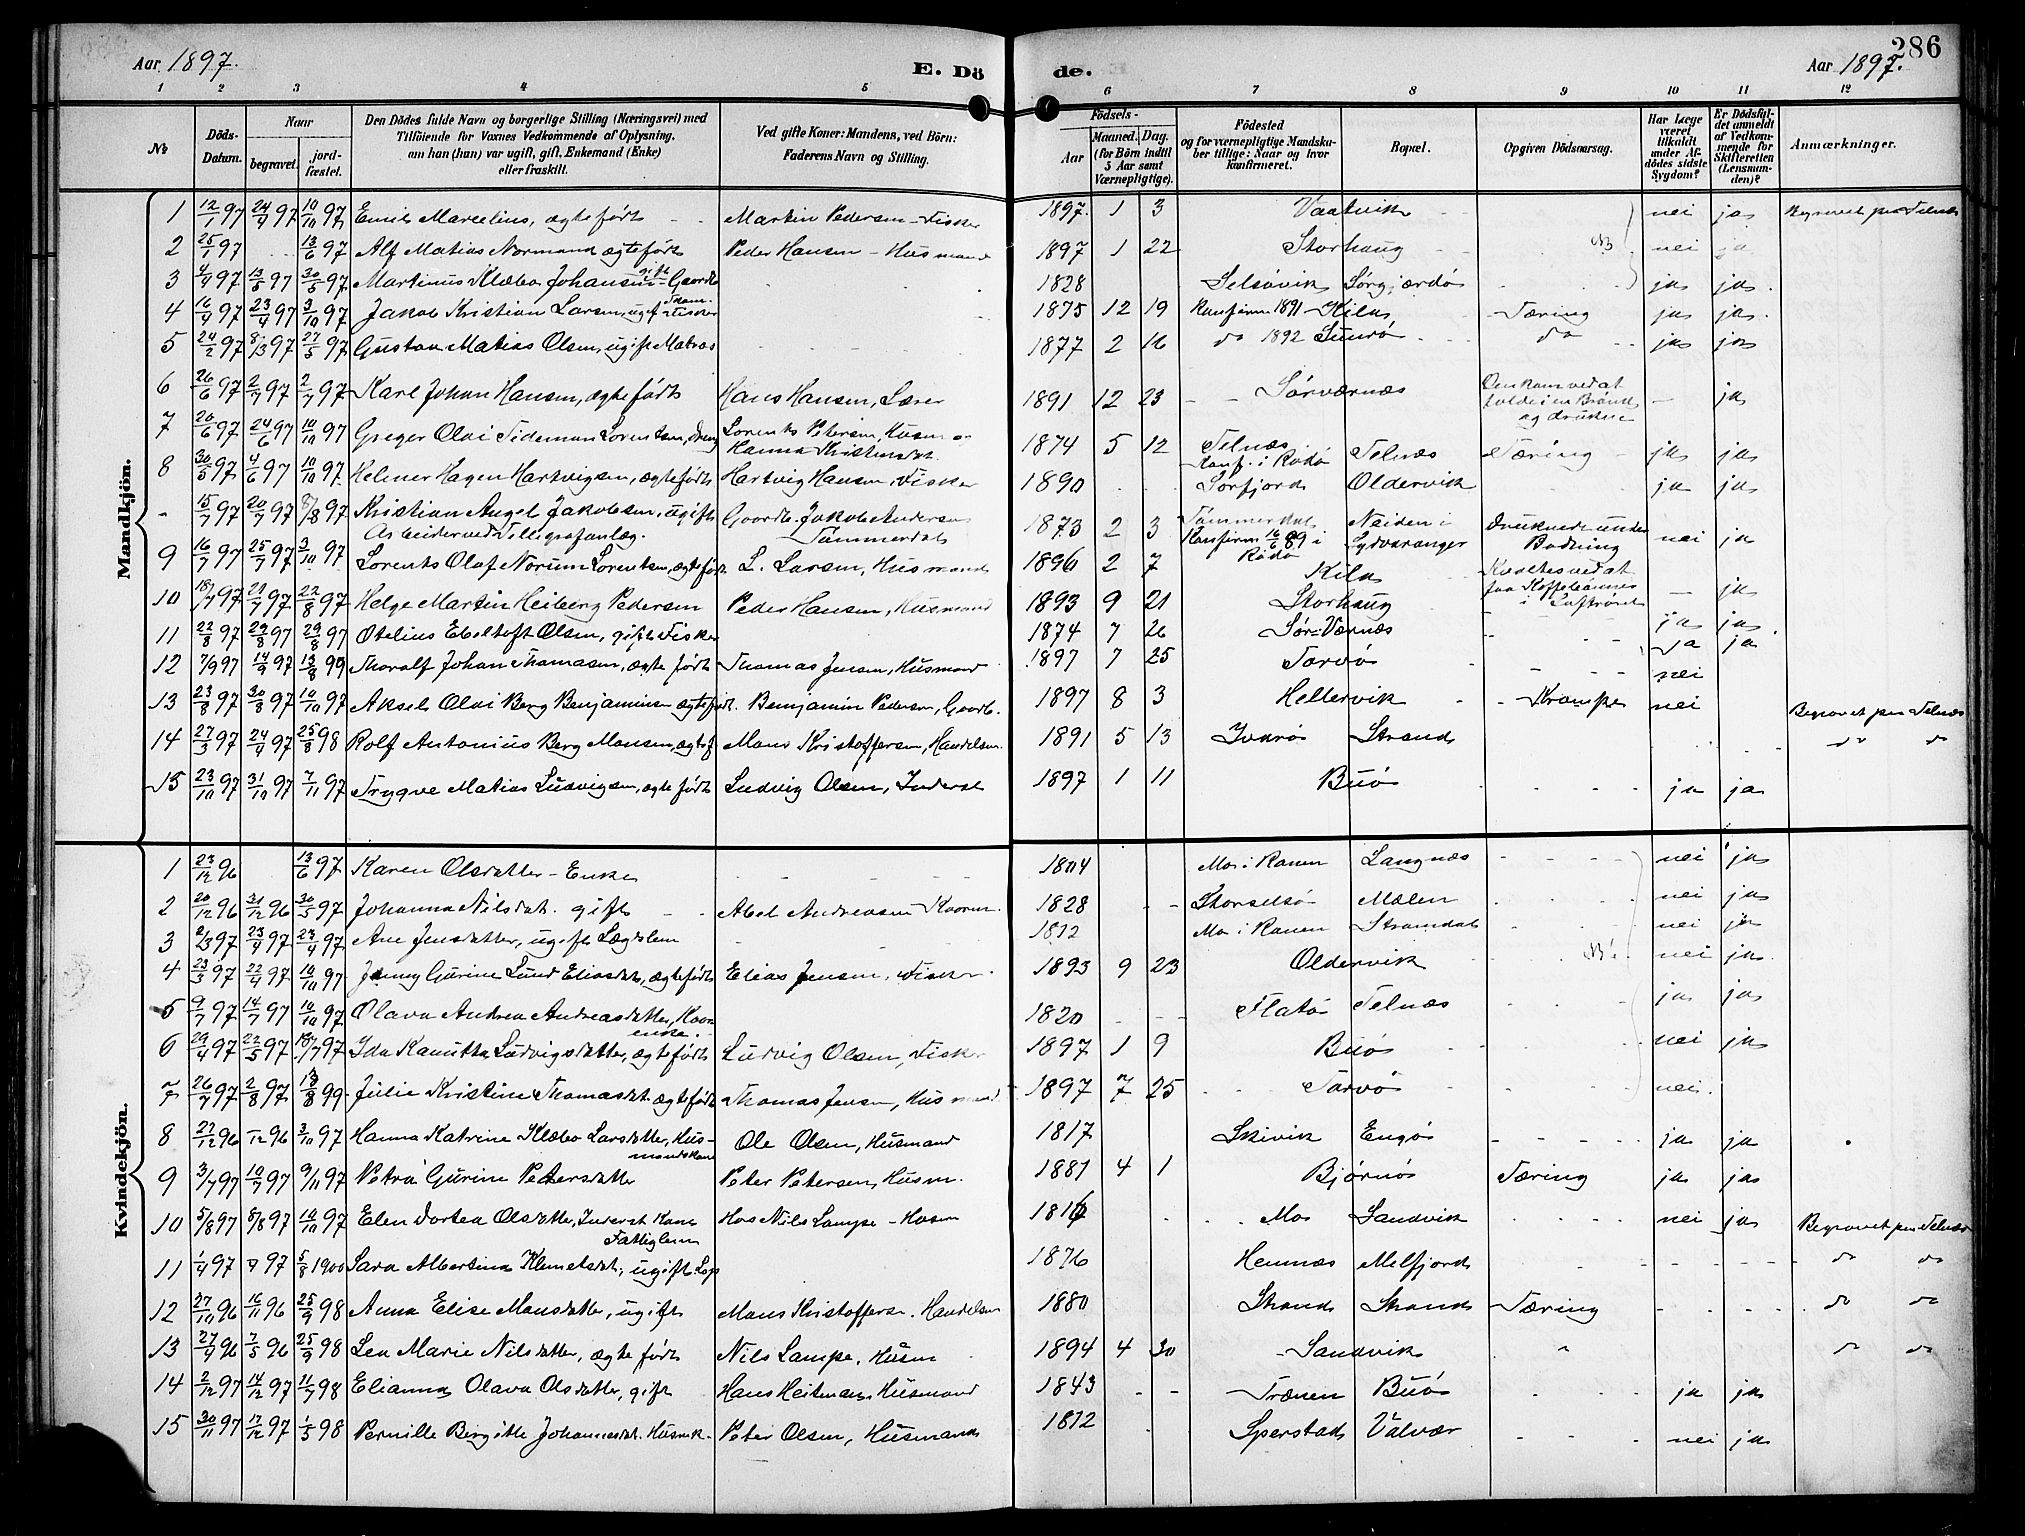 286
Aar 1897. E. Dö de. Aar 1897.
1 2 3 4 5 6 7 8 9 10 11 12
№ Döds-Datum. Naar begravet. jord-fæstet. Den Dödes fulde Navn og borgerlige Stilling (Næringsvei) med Tilföiende for Voxnes Vedkommende af Oplysning, om han (hun) var ugift, gift, Enkemand (Enke) eller fraskilt. Ved gifte Koner: Mandens, ved Börn: Faderens Navn og Stilling. Födsels- Aar Maaned. Dag. (for Börn indtil 5 Aar samt Værnepligtige). Födested og for værnepligtige Mandskaber tillige: Naar og hvor konfirmeret. Bopæl. Opgiven Dödsaarsag. Har Læge været tilkaldt under Afdödes sidste Sygdom? Er Dödsfaldet anmeldt af Vedkommende for Skifteretten (Lensmanden)? Anmærkninger.
Mandkjön.
1 12/1 97 24/4 97 10/10 97 Emil Marcelius, ægtefødt Martin Pedersen Fisker 1897. 1 3 Vaatvik nei ja Begravet paa Telnæs
2 25/1 97 13/6 97 Alf Matias Normann ægtefødt Peder Hansen - Husmand 1897 1 22 Storhaug nei ja
3 4/4 97 13/5 97 30/5 97 Martinus Klæbo Johansen gift Gaardb 1828 Selsøvik Sørgjærdø ja ja.
4 16/4 97 23/4 97 3/10 97 Jakob Kristian Larsen, ugift Fisker 1875 12 19 Konfirm. 1891 Kila Tæring ja ja.
5 24/2 97 8/3 97 27/5 97 Gustav Matias Olsen, ugift Matros 1877 2 16 do 1892 Sundø do ja ja
6 26/6 97 2/7 97 2/7 97 Karl Johan Hansen, ægtefødt Hans Hansen, Lærer 1891 12 23 Sørværnæs Omkom ved at falde i en Brønd og drukne — ja
7 20/6 97 24/6 97 10/10 97 Greger Olai Tideman Lorentsen, Lorents Petersen, Husm og Hanna Kristensdat. 1874 5 12 Telnæs Konf. i Rødø Telnæs Tæring ja ja
8 30/5 97 4/6 97 10/10 97 Helmer Hagen Hartvigsen, ægtefødt Hartvig Hansen, Fisker 1890 Sørfjord Oldervik ja ja
- 15/7 97 20/7 97 8/8 97 Kristian Angel Jakobsen, ugift Arbeider ved Telegrafanlæg. Gaardb. Jakob Andersen Tømmerdal 1873 2 3 Tømmerdal Konfirm 16/6 89 i Rødø Neiden i Sydvaranger Druknede under Badning nei ja
9 16/7 97 25/7 97 3/10 97 Lorents Olaf Norum Lorentsen, ægtefødt L. Larsen, Husmand 1896 2 7 Kila Kvaltes ved at faa Kaffebønne i Luftrøret — ja
10 18/7 97 21/7 97 22/8 97 Helge Martin Heiberg Pedersen Peder Hansen, Husmand 1893 9 21 Storhaug ja ja
11 22/8 97 29/8 97 29/8 97 Otelius Ebeltoft Olsen, gift Fisker 1874 7 26 Sør-Værnæs ja ja
12 7/9 97 14/9 97 13/8 99 Thoralf Johan Thomasen, ægte født Thomas Jensen, Husmand 1897 7 25 Tarvø nei
13 23/8 97 30/8 97 10/10 97 Aksel Olai Berg Benjaminsen ægtefødt. Benjamin Pedersen, Gaardb. 1897 8 3 Hellervik Krampe nei
14 27/3 97 24/4 97 25/8 98 Rolf Antonius Berg Monsen, ægtef Mons Kristoffersen, Handelsm. 1891 5 13 Strand Begravet paa Telnæs do do
15 23/10 97 31/10 97 7/11 97 Trygve Matias Ludvigsen, ægte født Ludvig Olsen, Inderst 1897 1 11 Buø ja ja
Kvindekjön.
1 23/12 96 13/6 97 Karen Olsdatter - Enke 1804 Mo i Ranen Langnæs nei ja
2 20/12 96 31/12 96 30/5 97 Johanna Nilsdat. gift Abel Andreasen Kaarm. 1828 Storselsø Mælen nei ja
3 2/3 97 23/4 97 23/4 97 Ane Jensdatter, ugift Lægdslem 1812 Mo i Ranen Strømdal nei ja
4 23/3 97 22/4 97 10/10 97 Jenny Gurine Lund Eliasdat, ægtefødt Elias Jensen, Fisker 1893 9 23 Oldervik nei ja.
5 9/7 97 14/7 97 10/10 97 Olava Andrea Andreasdatter, Kaarenke. 1820 Flatø Telnæs ja ja
6 29/4 97 22/5 97 18/7 97 Ida Kanutta Ludvigsdatter, ægtefødt Ludvig Olsen, Fisker 1897 1 9 Buø nei ja
7 26/7 97 2/8 97 13/8 99 Julie Kristine Thomasdat. ægtefødt Thomas Jensen, Husmand 1897 7 25 Tarvø nei.
8 27/12 96 /12 96 3/10 97 Hanna Katrine Klæbo Larsdatter, Husmandskone Ole Olsen, Husmand 1817 Skivik Engø ja ja
9 3/7 97 10/7 97 9/11 97 Petra Gurine Petersdatter Peter Petersen, Husm. 1881 4 1 Bjørnø Tæring ja ja
10 5/8 97 8/8 97 10/10 97 Elen Dortea Olsdatter, Inderst Kone Fattiglem Hos Nils Lampe - Husm 1816 Mo Sandvik nei ja Begravet paa Telnæs
11 1/4 97 97 5/8 1900 Sara Albertina Klemetsdat, ugift Lap 1876 Hemnæs Melfjord do do
12 27/10 96 16/11 96 25/9 98 Anna Elise Monsdatter, ugift Mons Kristoffers. Handelsm 1880 Strand Strand Tæring do do
13 27/4 96 7/5 96 25/9 98 Lea Marie Nilsdatter, ægte født Nils Lampe, Husm 1894 4 30 Sandvik " do do
14 2/12 97 14/12 97 11/7 98 Elianna Olava Olsdatter, gift Hans Heitman, Husmand 1843 Trænen Buø ja ja
15 30/11 97 17/12 97 1/5 98 Pernille Birgitte Johannesdat. Husmk. Peter Olsen, Husmand 1812 Sperstad Valvær nei ja